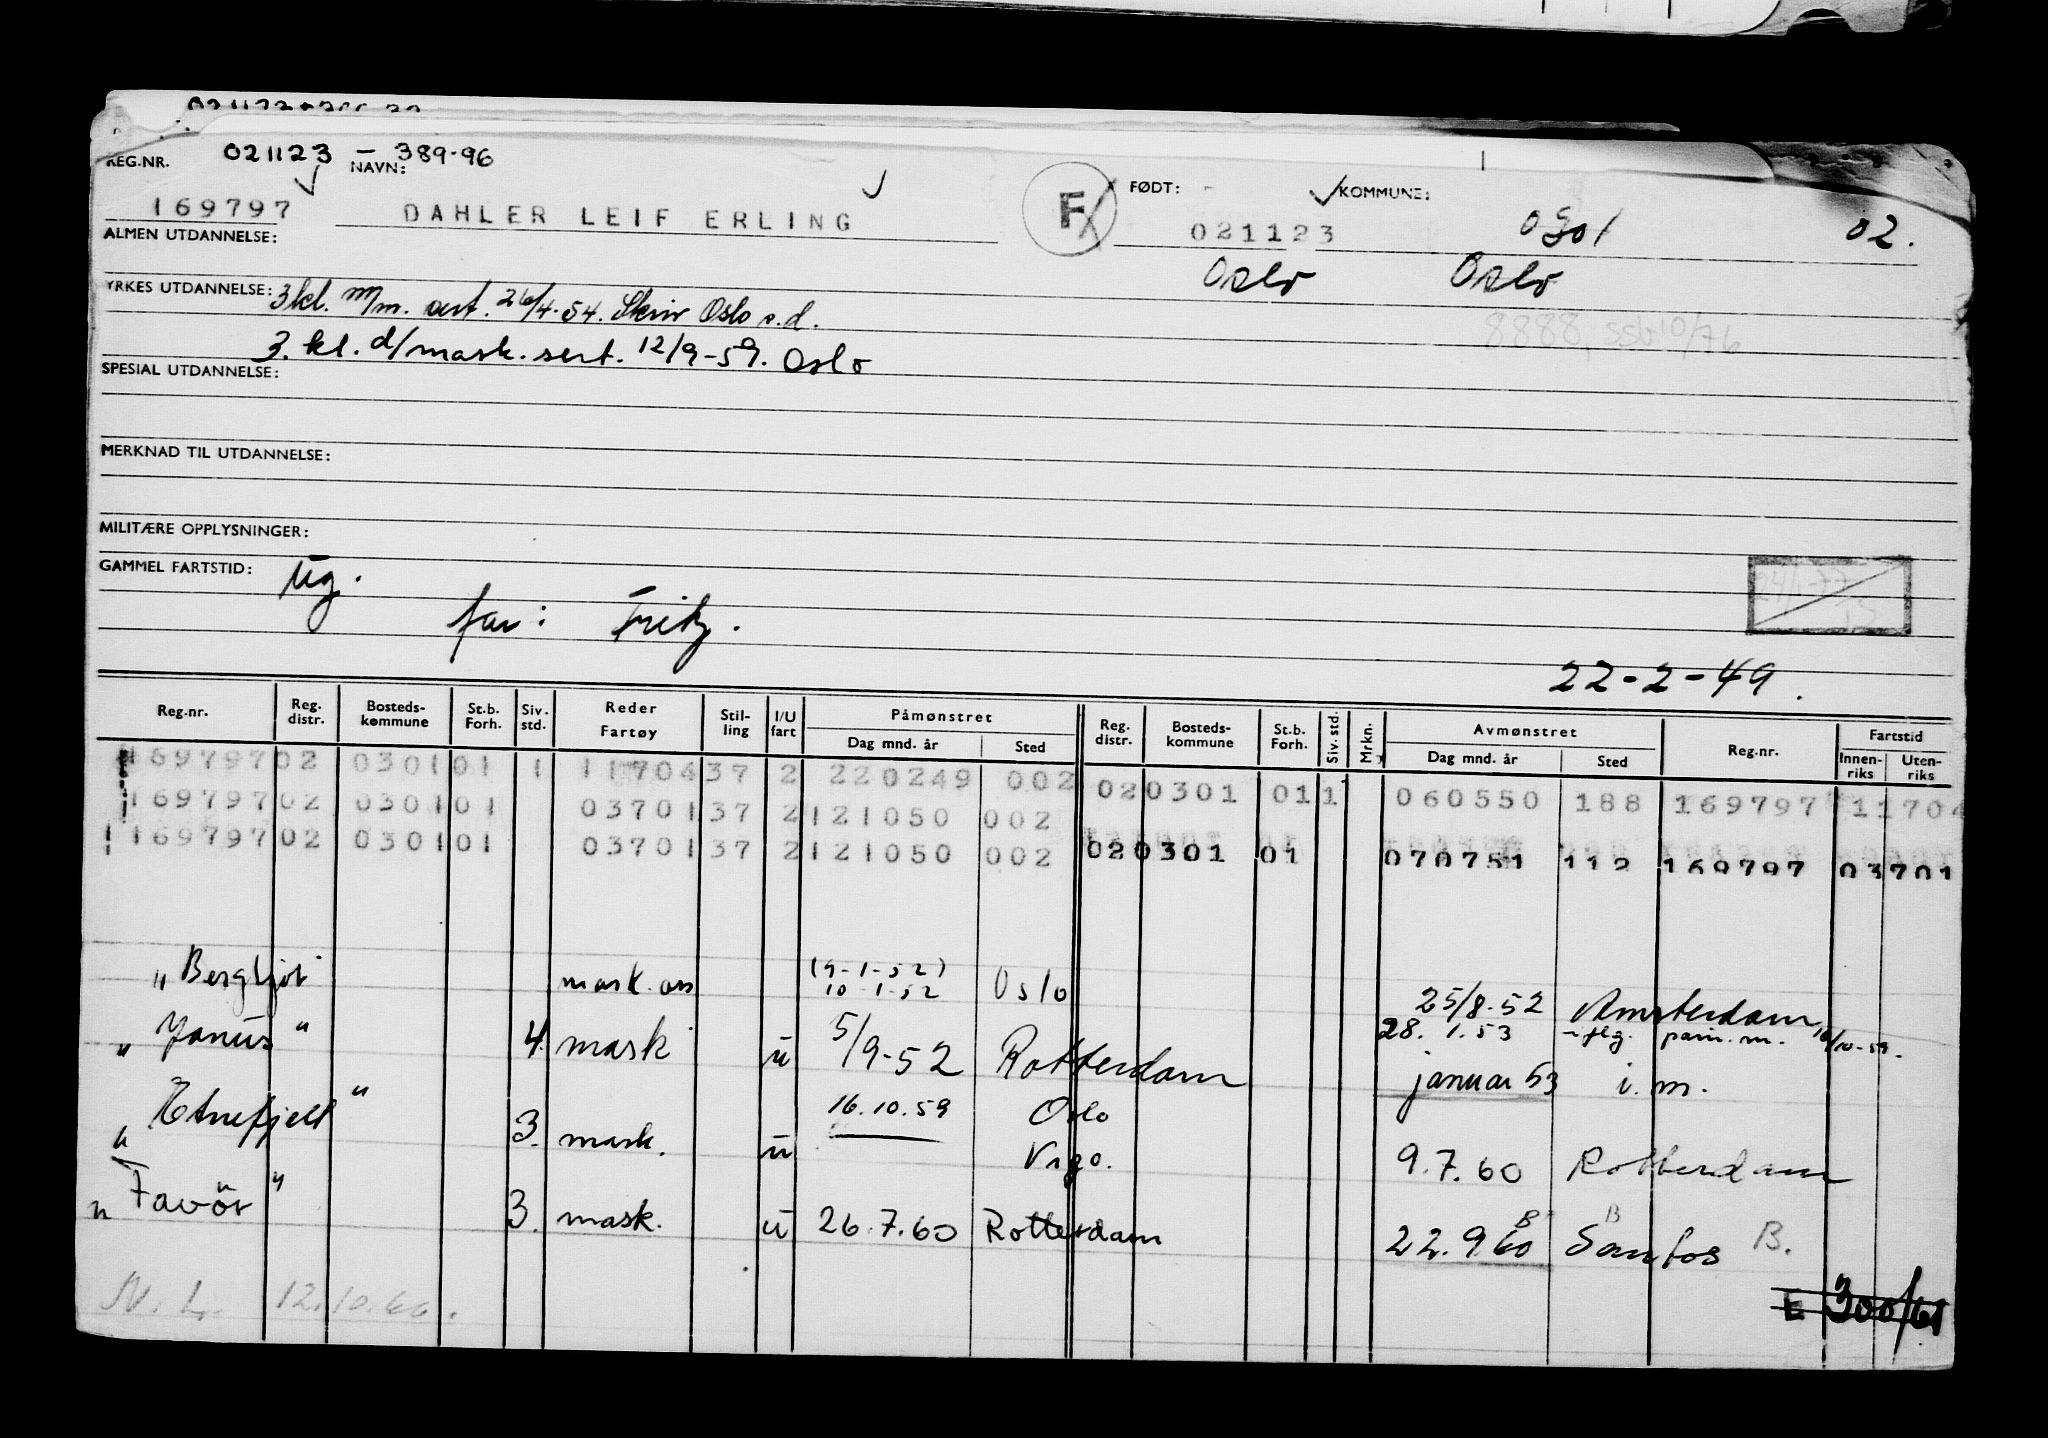 REG.NR. 021123 – 389-96 NAVN: FØDT: KOMMUNE:
169797 DAHLER LEIF ERLING F 021123 0301 02.
ALMEN UTDANNELSE: Oslo Oslo
YRKES UTDANNELSE: 3 kl. m/m. 26/4-54. Oslo s.d.
3. kl. d/mask. sert. 12/9-59. Oslo 8888, ssb 10/76
SPESIAL UTDANNELSE:
MERKNAD TIL UTDANNELSE:
MILITÆRE OPPLYSNINGER:
GAMMEL FARTSTID: Ug.
far: Fritz.
22-2-49.
Reg.nr. Reg. distr. Bosteds-kommune St.b. Forh. Siv. std. Reder Fartøy Stil-ling I/U fart Påmønstret Dag mnd. år Sted Reg. distr. Bosteds-kommune St.b. Forh. Siv. std. Mrkn. Avmønstret Dag mnd. år Sted Reg.nr. Fartstid Innen-riks Uten-riks
169797 02 0301 01 1 11704 37 2 220249 002 02 0301 01 1 060550 188 169797 11704
169797 02 0301 01 03701 37 2 121050 002
169797 02 0301 01 03701 37 2 121050 002 02 0301 01 070751 112 169797 03701
"Bergljot" mask. ass (9-1-52) 10-1-52 Oslo 25/8-52 Amsterdam
"Janus" 4. mask u 5/9-52 Rotterdam 28. 1.53
januar 53 i. m.
"Etnefjell" 3. mask. u 16.10.59 Oslo
Vigo. 9.7.60 Rotterdam
"Favör" 3. mask. u 26.7.60 Rotterdam 22.9.60 Santos B.
N.L. 12.10.60.
E 300/61